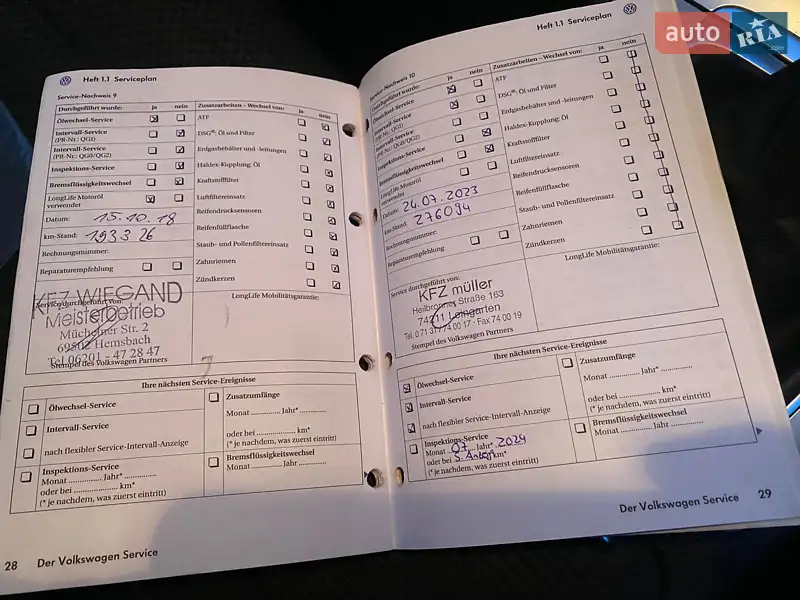 Heft 1.1 Serviceplan
Service-Nachweis 9
Durchgeführt wurde: ja nein
Ölwechsel-Service
Intervall-Service
(PR-Nr.: QG1)
Intervall-Service
(PR-Nr.: QG0/QG2)
Inspektions-Service
Bremsflüssigkeitswechsel
LongLife Motoröl
verwendet
Datum: 15.10.18
km-Stand: 193326
Rechnungsnummer:
Reparaturempfehlung
Service durchgeführt von:
KFZ WIEGAND
Meisterbetrieb
Str. 2
69502 Hemsbach
Tel. 06201 - 47 28 47
Stempel des Volkswagen Partners
Zusatzarbeiten - Wechsel von: ja nein
ATF
DSG®: Öl und Filter
Erdgasbehälter und -leitungen
Haldex-Kupplung: Öl
Kraftstofffilter
Luftfiltereinsatz
Reifendrucksensoren
Reifenfüllflasche
Staub- und Pollenfiltereinsatz
Zahnriemen
Zündkerzen
LongLife Mobilitätsgarantie:
Ihre nächsten Service-Ereignisse
Ölwechsel-Service
Intervall-Service
nach flexibler Service-Intervall-Anzeige
Inspektions-Service
Monat ............... Jahr* ...............
oder bei ............... km*
(* je nachdem, was zuerst eintritt)
Zusatzumfänge
Monat ............... Jahr* ...............
oder bei ............... km*
(* je nachdem, was zuerst eintritt)
Bremsflüssigkeitswechsel
Monat ............... Jahr ...............
28 Der Volkswagen Service
Heft 1.1 Serviceplan
Service-Nachweis 10
Durchgeführt wurde: ja nein
Ölwechsel-Service
Intervall-Service
(PR-Nr.: QG1)
Intervall-Service
(PR-Nr.: QG0/QG2)
Inspektions-Service
Bremsflüssigkeitswechsel
LongLife Motoröl
verwendet
Datum: 24.07.2023
km-Stand: 276094
Rechnungsnummer:
Reparaturempfehlung
Service durchgeführt von:
KFZ müller
Heilbronner Straße 163
74211 Leingarten
Tel. 0 71 31 / 74 00 17 - Fax 74 00 19
Stempel des Volkswagen Partners
Zusatzarbeiten - Wechsel von: ja nein
ATF
DSG®: Öl und Filter
Erdgasbehälter und -leitungen
Haldex-Kupplung: Öl
Kraftstofffilter
Luftfiltereinsatz
Reifendrucksensoren
Reifenfüllflasche
Staub- und Pollenfiltereinsatz
Zahnriemen
Zündkerzen
LongLife Mobilitätsgarantie:
Ihre nächsten Service-Ereignisse
Ölwechsel-Service
Intervall-Service
nach flexibler Service-Intervall-Anzeige
Inspektions-Service
Monat 07 Jahr* 2024
oder bei S. Anzeige km*
(* je nachdem, was zuerst eintritt)
Zusatzumfänge
Monat ............... Jahr* ...............
oder bei ............... km*
(* je nachdem, was zuerst eintritt)
Bremsflüssigkeitswechsel
Monat ............... Jahr ...............
Der Volkswagen Service 29
auto RIA .com